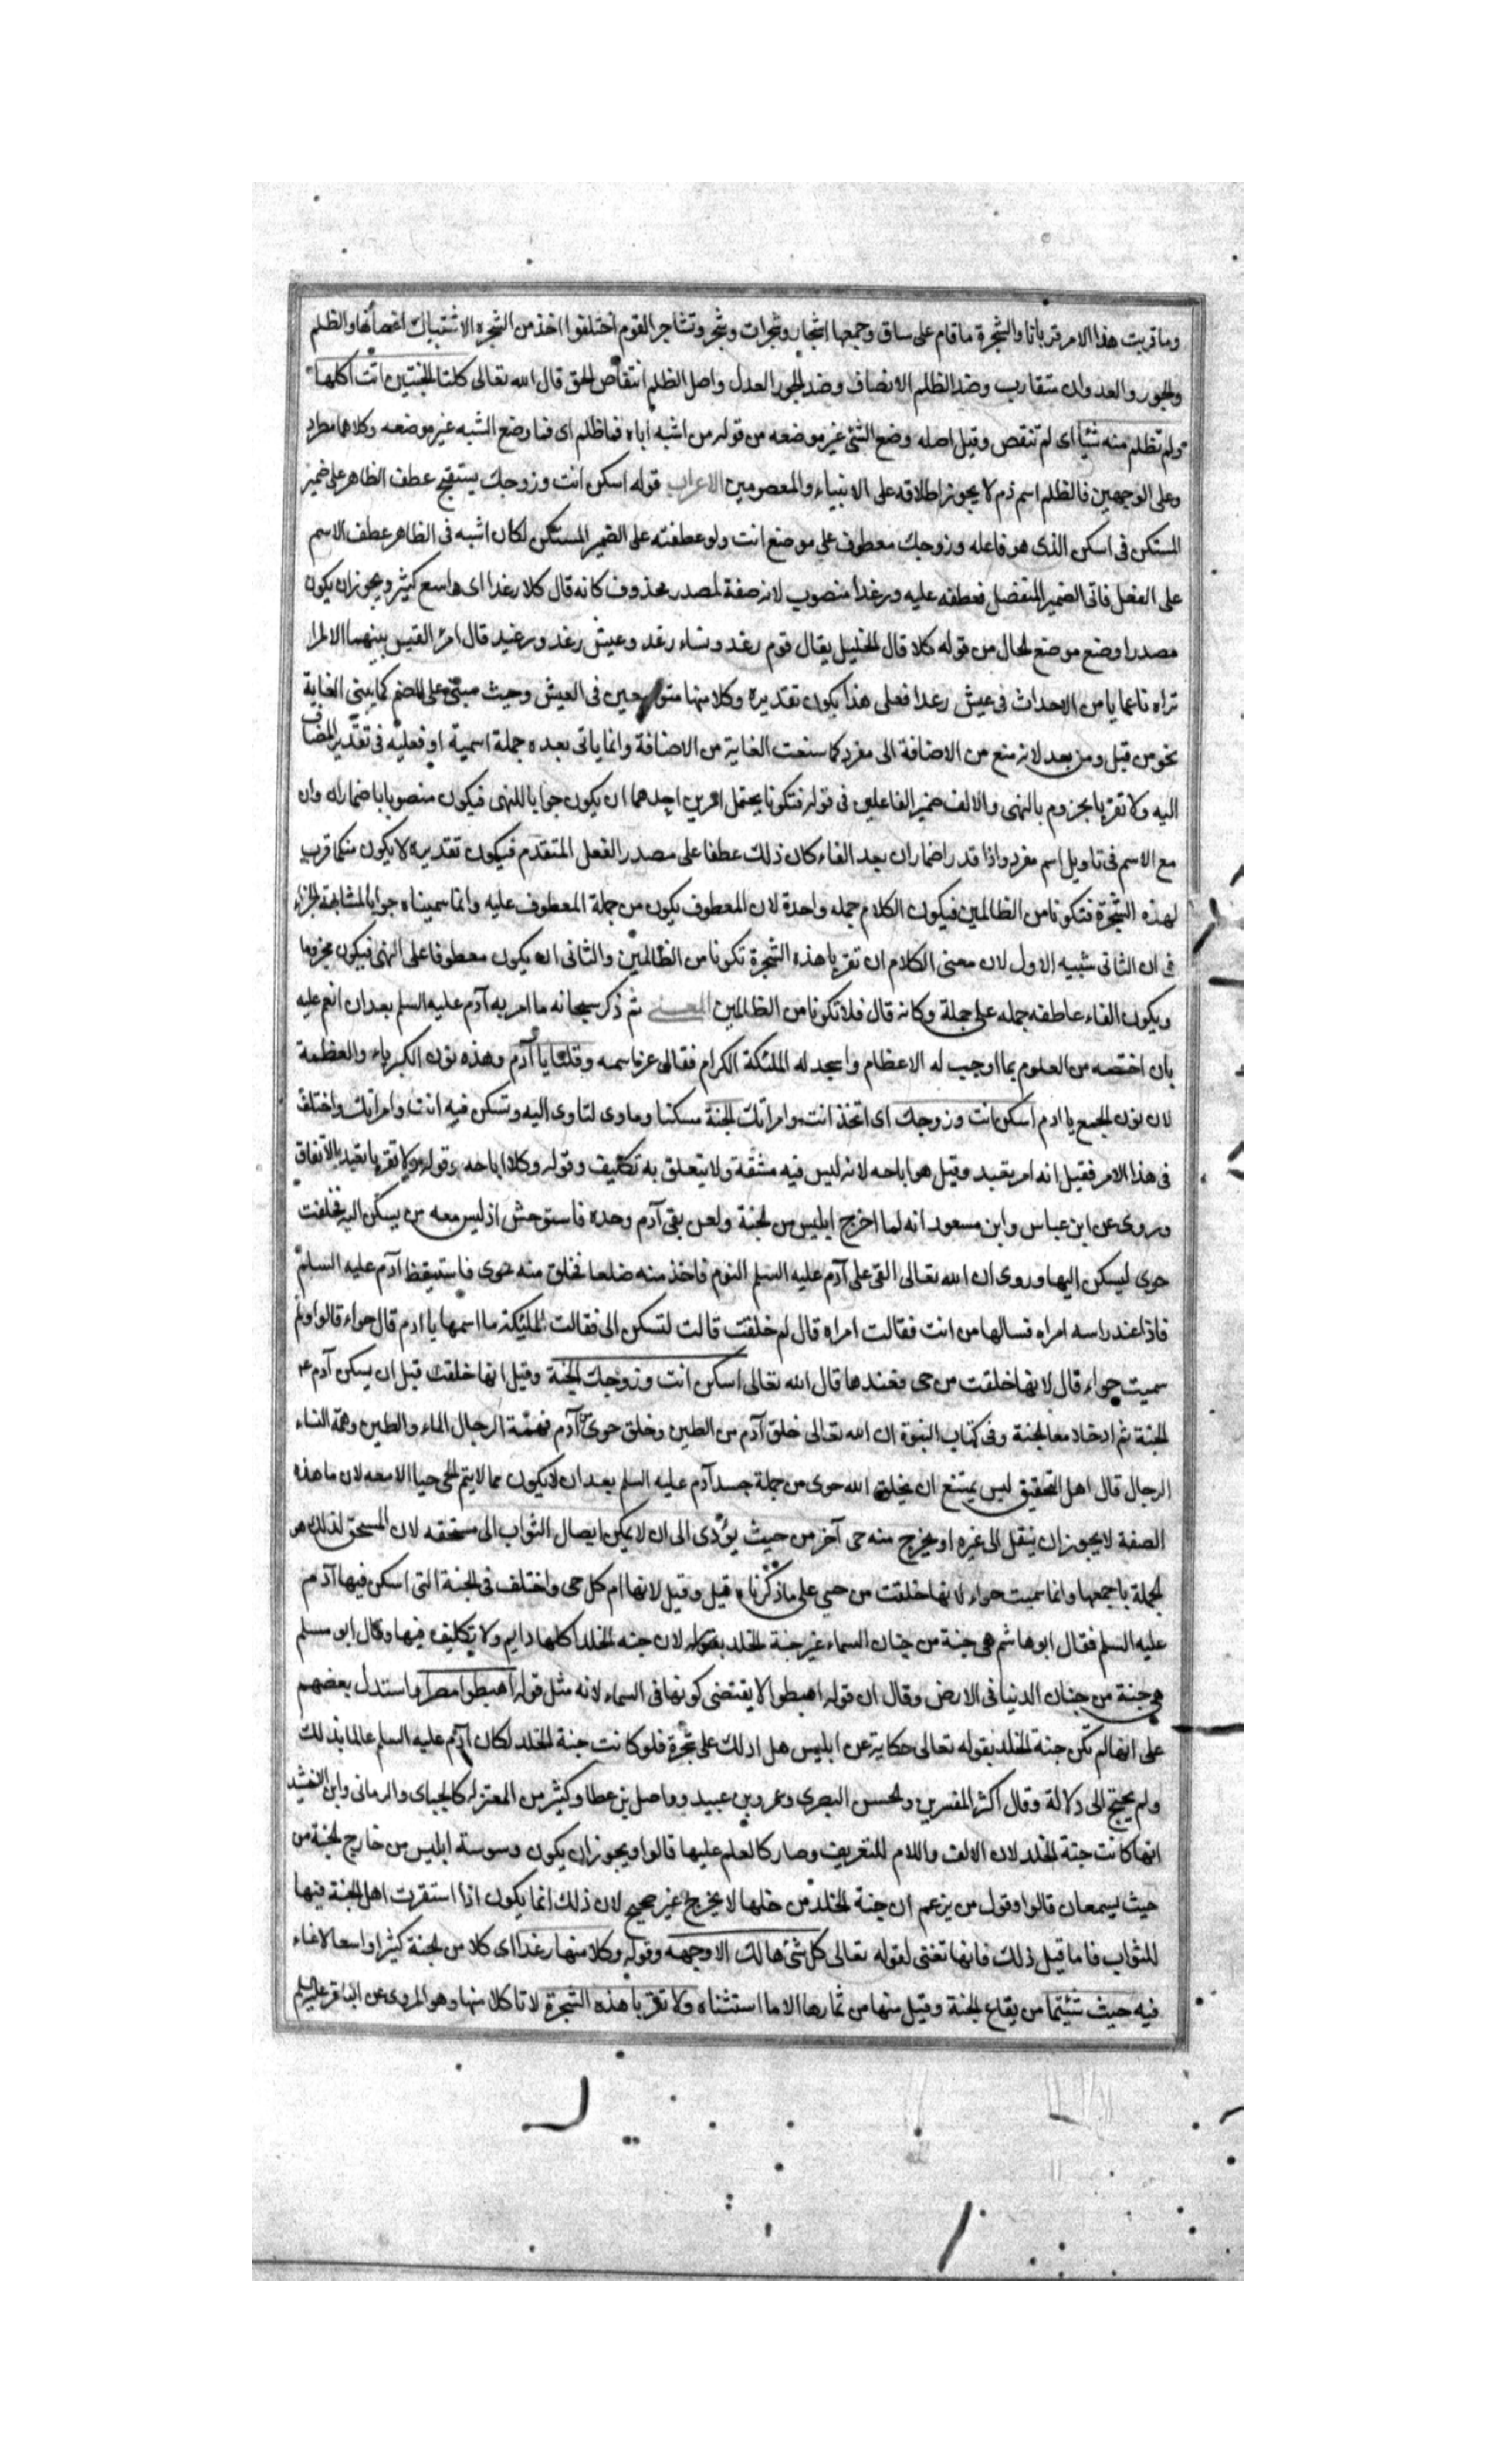 وما قربت هذا الامر قربانا والشجرة ما قام على ساق وجمعها اشجار وشجرات وشجر وتشاجر القوم اختلفوا اخذ من الشجره الاشتباك اغصانها والظلم
والجور والعدوان متقارب وضد الظلم الانصاف وضد الجور العدل واصل الظلم انتقاص الحق قال الله تعالى كلتا الجنتين اتت اكلها
ولم تظلم منه شيئا اى لم تنقص وقيل اصله وضع الشئ غير موضعه من قوله من اشبه اباه فما ظلم اى فما وضع الشبه غير موضعه وكلاهما مطرد
وعلى الوجهين فالظلم اسم ذم لا يجوز اطلاقه على الانبياء والمعصومين الاعراب قوله اسكن انت وزوجك يستقبح عطف الظاهر على ضمير
المستكن فى اسكن الذى هو فاعله وزوجك معطوف على موضع انت ولو عطفته على الضمير المستكن لكان اشبه فى الظاهر عطف الاسم
على الفعل فاتى الضمير المنفصل فعطفه عليه ورغدا منصوب لانه صفة لمصدر محذوف كانه قال كلا رغدا اى واسع كثير ويجوز ان يكون
مصدرا وضع موضع الحال من قوله كلا قال الخليل يقال قوم رغد ونساء رغد وعيش رغد ورغيد قال امرؤ القيس بينهما المرا
تراه ناعما يا من الاحداث فى عيش رغدا فعلى هذا يكون تقديره وكلا منها متوسعين فى العيش وحيث مبنى على الضم كما يبنى الغاية
نحو من قبل ومن بعد لانه منع من الاضافة الى مفرد كما منعت الغاية من الاضافة وانما ياتى بعده جملة اسمية او فعليه فى تقدير المضاف
اليه ولا تقربا مجزوم بالنهى والالف ضمير الفاعلين فى قوله فتكونا يحتمل امرين احدهما ان يكون جوابا للنهى فيكون منصوبا باضمار ان وان
مع الاسم فى تاويل اسم مفرد واذا قدر اضمار ان بعد الفاء كان ذلك عطفا على مصدر الفعل المتقدم فيكون تقديره لا يكون منكما قرب
لهذه الشجرة فتكونا من الظالمين فيكون الكلام جمله واحدة لان المعطوف يكون من جملة المعطوف عليه وانما سميناه جوابا لمشابهته الجزاء
فى ان الثانى سببه الاول لان معنى الكلام ان تقربا هذه الشجرة تكونا من الظالمين والثانى ان يكون معطوفا على النهى فيكون مجزوما
ويكون الفاء عاطفه جمله على جملة وكانه قال فلا تكونا من الظالمين المعنى ثم ذكر سبحانه ما امر به آدم عليه السلم بعد ان انعم عليه
بان اختصه من العلوم بما اوجب له الاعظام واسجد له الملئكة الكرام فقال عز اسمه وقلنا يا آدم وهذه نون الكبرياء والعظمة
لان نون الجمع يا ادم اسكن انت وزوجك اى اتخذ انت وامراتك الجنة مسكنا وماوى لتاوى اليه وتسكن فيه انت وامراتك واختلف
فى هذا الامر فقيل انه امر تعبد وقيل هو اباحه لانه ليس فيه مشقة ولا يتعلق به تكليف وقوله وكلا اباحه وقوله ولا تقربا تعبد بالاتفاق
وروى عن ابن عباس وابن مسعود انه لما اخرج ابليس من الجنة ولعن بقى آدم وحده فاستوحش اذ ليس معه من يسكن اليه فخلقت
حوى ليسكن اليها وروى ان الله تعالى القى على آدم عليه السلم النوم فاخذ منه ضلعا فخلق منه حوى فاستيقظ آدم عليه السلم
فاذا عند راسه امراه فسالها من انت فقالت امراه قال لم خلقت قالت لتسكن الى فقالت الملئكة ما اسمها يا ادم قال حواء قالوا ولم
سميت حواء قال لانها خلقت من حى فعندها قال الله تعالى اسكن انت وزوجك الجنة وقيل انها خلقت قبل ان يسكن آدم ع
الجنة ثم ادخلا معا الجنة وفى كتاب النبوة ان الله تعالى خلق آدم من الطين وخلق حوى من آدم فهمة الرجال الماء والطين وهمة النساء
الرجال قال اهل التحقيق ليس يمتنع ان يخلق الله حوى من جملة جسد آدم عليه السلم بعد ان لا يكون مما لا يتم الحى حيا الا معه لان ما هذه
الصفة لا يجوز ان ينقل الى غيره او يخرج منه حى آخر من حيث يؤدى الى ان لا يمكن ايصال الثواب الى مستحقه لان المستحق لذلك هو
الجملة باجمعها وانما سميت حواء لانها خلقت من حى على ما ذكرناه قيل وقيل لانها ام كل حى واختلف فى الجنة التى اسكن فيها آدم
عليه السلم فقال ابو هاشم هى جنة من جنان السماء غير جنة الخلد لان جنه الخلد اكلها دايم ولا تكليف فيها وقال ابو مسلم
هى جنة من جنان الدنيا فى الارض وقال ان قوله اهبطوا لا يقتضى كونها فى السماء لانه مثل قوله اهبطوا مصرا واستدل بعضهم
على انها لم تكن جنة الخلد بقوله تعالى حكاية عن ابليس هل ادلك على شجرة فلو كانت جنة الخلد لكان آدم عليه السلم عالما بذلك
ولم يحتج الى دلالة وقال اكثر المفسرين والحسن البصرى وعمرو بن عبيد وواصل بن عطا وكثير من المعتزله كالجباى والرمانى وابن الاخشيد
انها كانت جنة الخلد لان الالف واللام للتعريف وصار كالعلم عليها قالوا ويجوز ان يكون وسوسة ابليس من خارج الجنة من
حيث يسمعان قالوا وقول من يزعم ان جنة الخلد من خلها لا يخرج غير صحيح لان ذلك انما يكون اذا استقرت اهل الجنة فيها
للثواب فاما قبل ذلك فانها تفنى لقوله تعالى كل شئ هالك الا وجهه وقوله وكلا منها رغدا اى كلا من الجنة كثيرا واسعا لا عناء
فيه حيث شئتما من بقاع الجنة وقيل منها من ثمارها الا ما استثناه ولا تقربا هذه الشجرة لا تاكلا منها وهو المروى عن الباقر عليه السلم